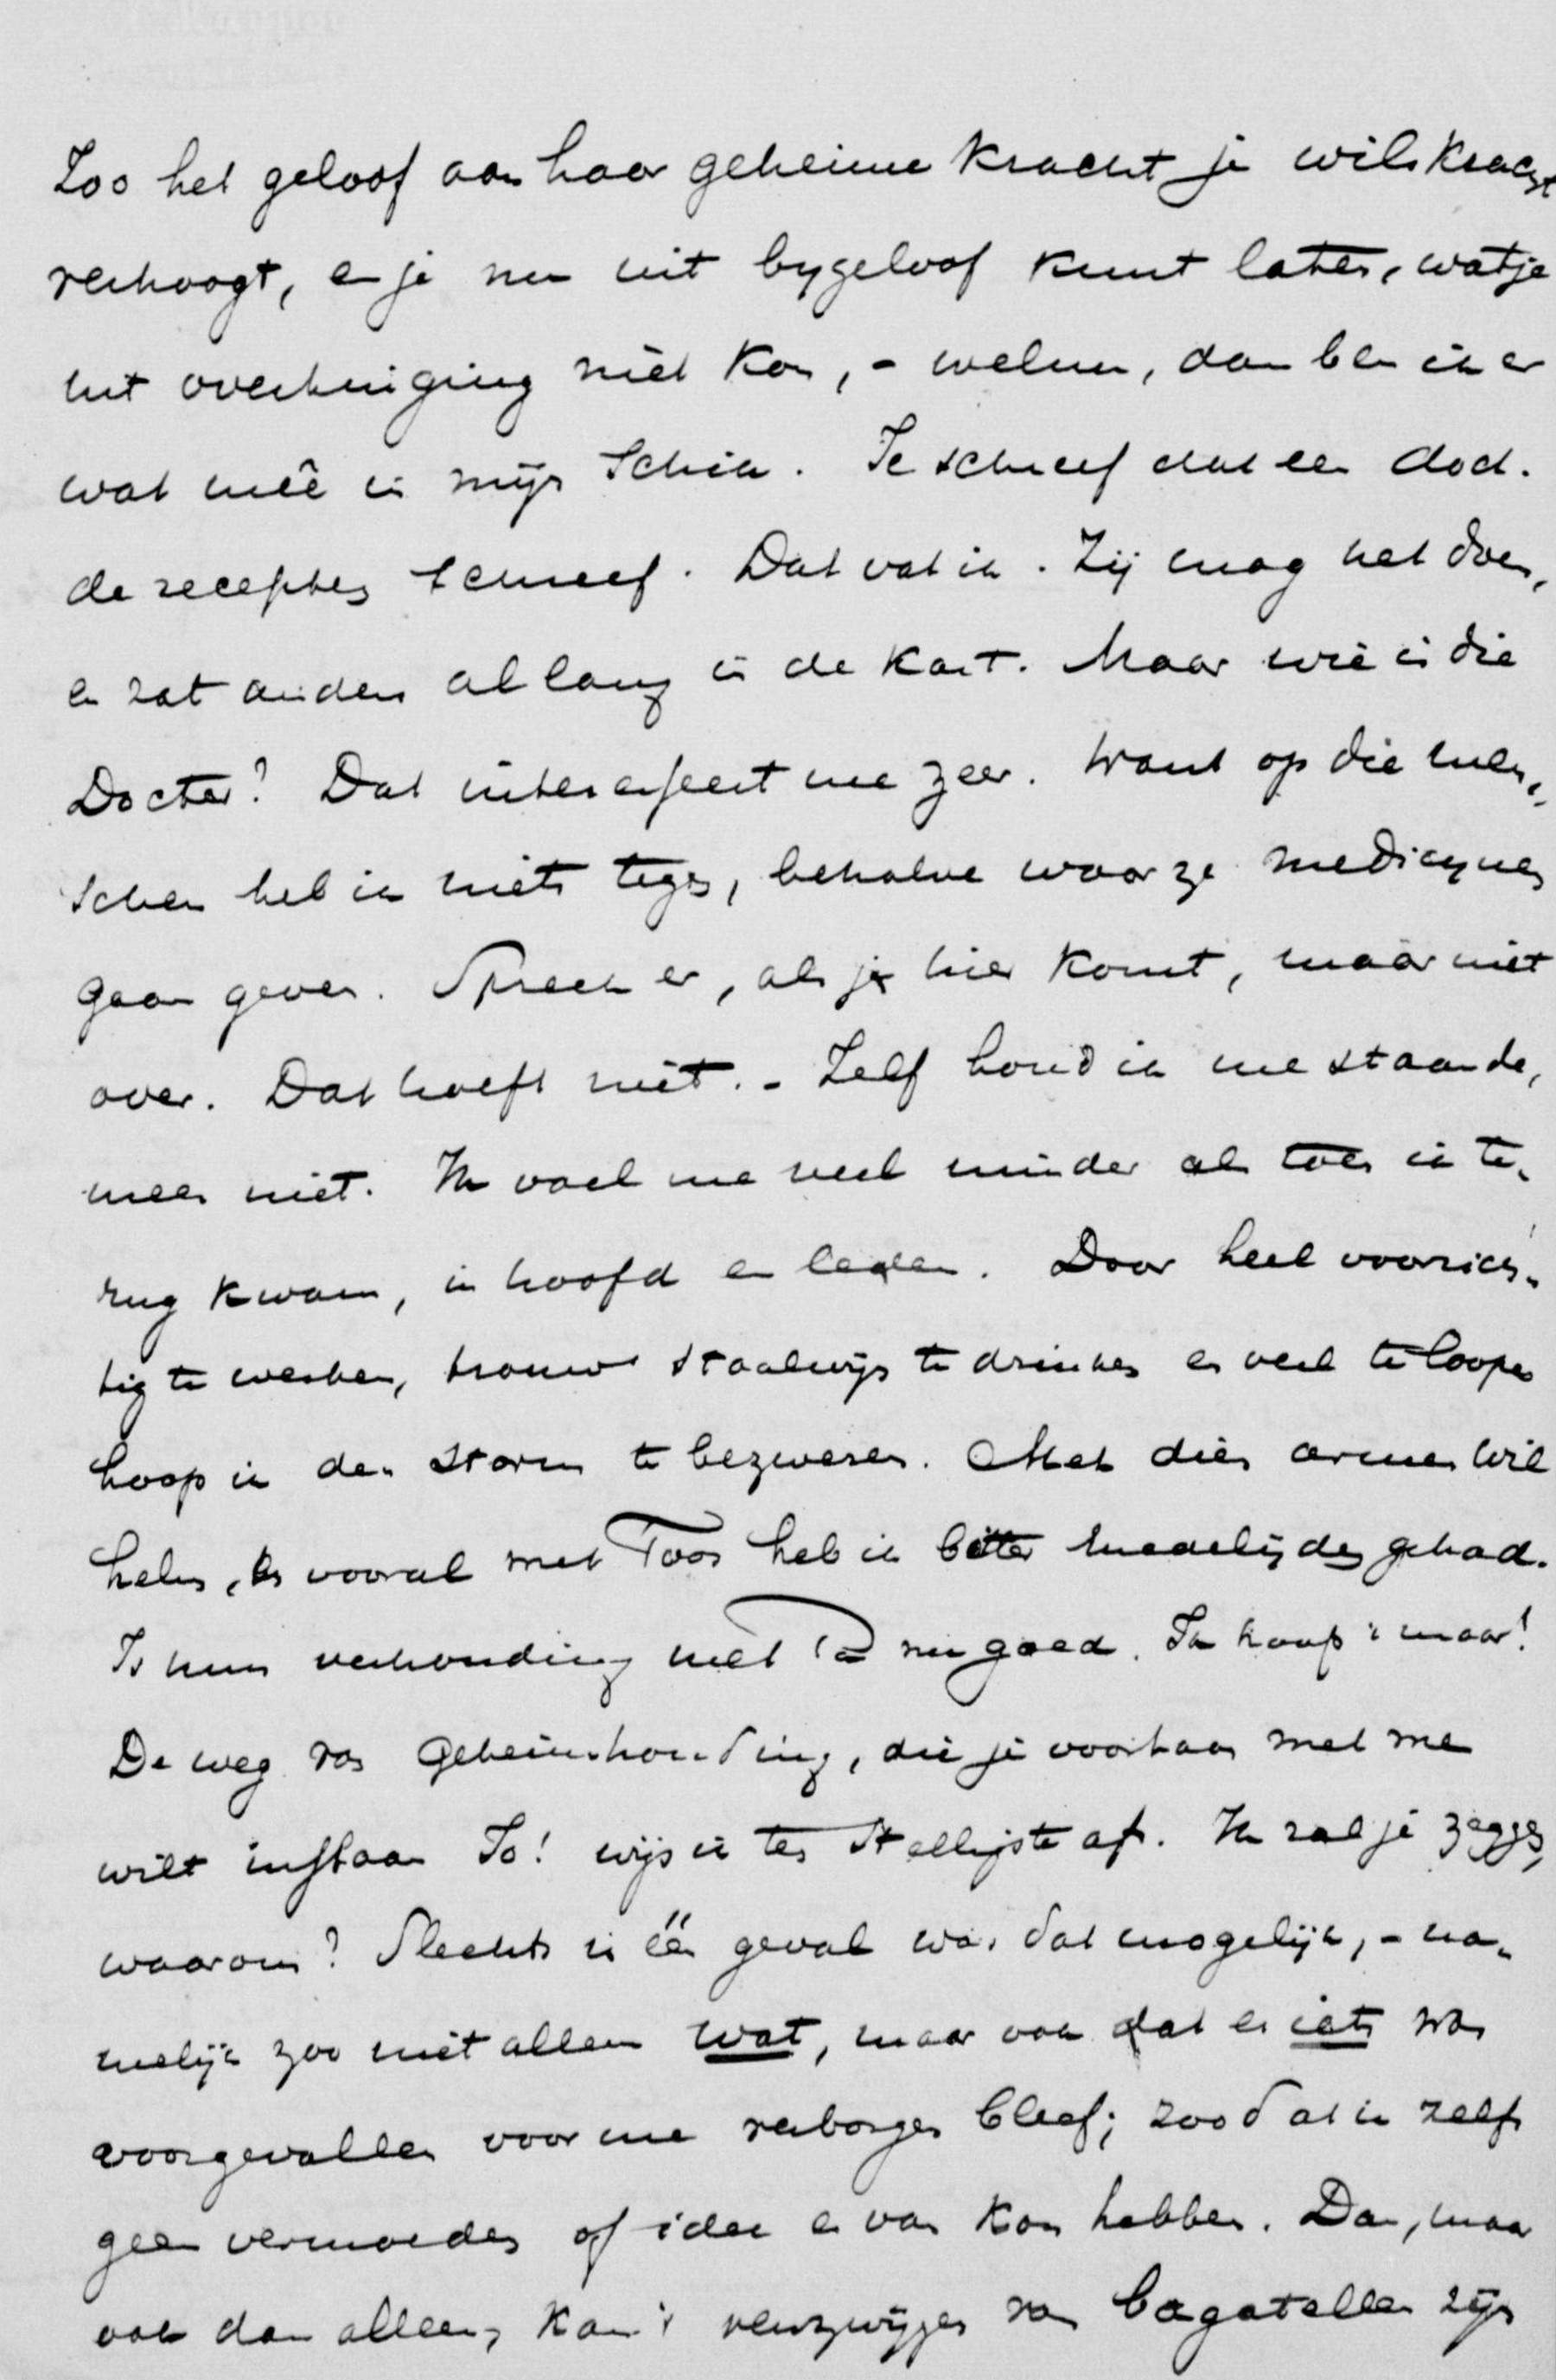 Zoo het geloof aan haar geheime kracht je wilskracht
verhoogt, en je nu uit bygeloof kunt laten, wat je
uit overtuiging niet kon, - welnu, dan ben ik er
wat meê in mijn schik. Je schreef dat een doc-
de recepten schreef. Dat vat ik. Zij mag het doen,
en zat anders al lang in de kast. Maar wie is die
Docter? Dat interesseert me zeer. Want op die men-
schen heb ik niets tegen, behalve waar ze medicynen
gaan geven. Spreek er, als je hier komt, maar niet
over. Dat hoeft niet. - Zelf houd ik me staande,
meer niet. Ik voel me veel minder als toen ik te-
rug kwam, in hoofd en leden. Door heel voorzich-
tig te werken, trouw staalwijn te drinken en veel te loopen
hoop ik den storm te bezweren. Met dien armen Wil
helm, en vooral met Toos heb ik bitter medelijden gehad.
Is hun verhouding met Pa nu goed. Ik hoop 't maar!
De weg van geheimhouding, die je voortaan met me
wilt inslaan Jo! wijs ik ten stelligste af. Ik zal je zeggen,
waarom? Slechts in één geval was dat mogelijk, - na-
melijk zoo niet alleen wat, maar ook dat er iets was
voorgevallen voor me verborgen bleef; zoodat ik zelfs
geen vermoeden of idee er van kon hebben. Dan, maar
ook dan alleen, kan 't verzwijgen van bagatellen zijn